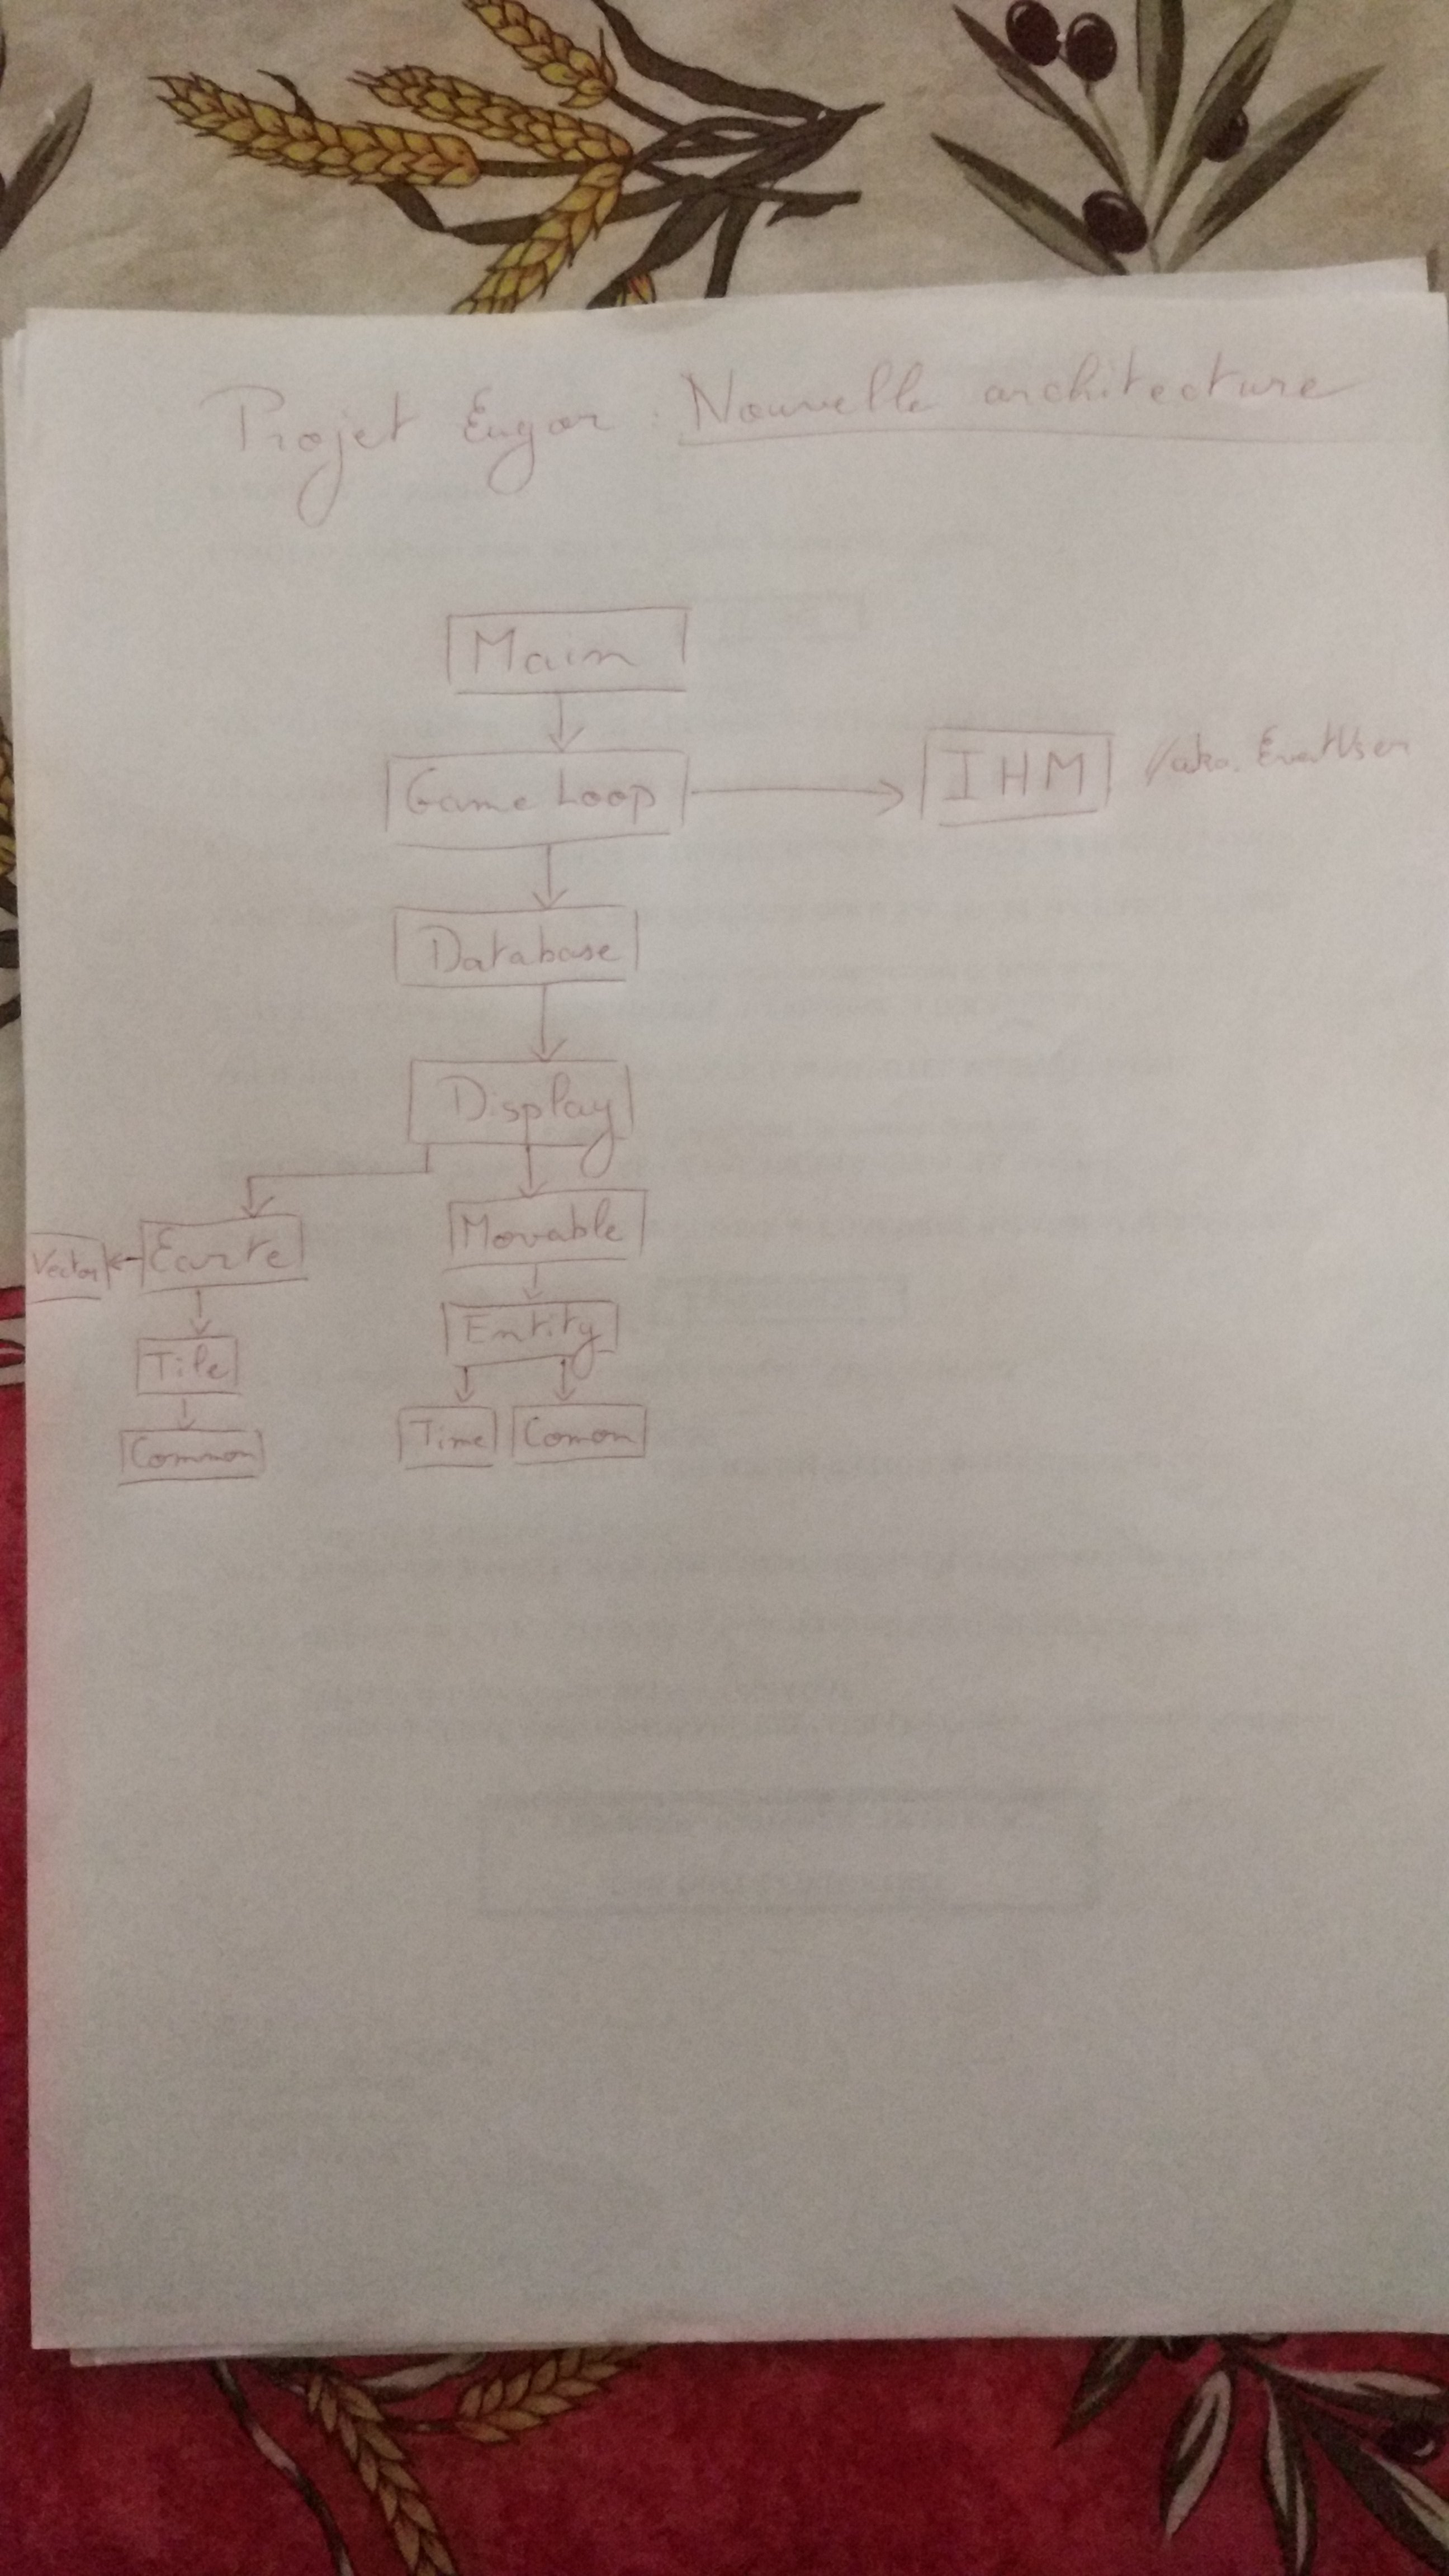 Projet Eugor : Nouvelle architecture
Main
Game Loop
IHM //aka. EventUser
Database
Display
Vector
Carte
Movable
Tile
Entity
Common
Time
Comon